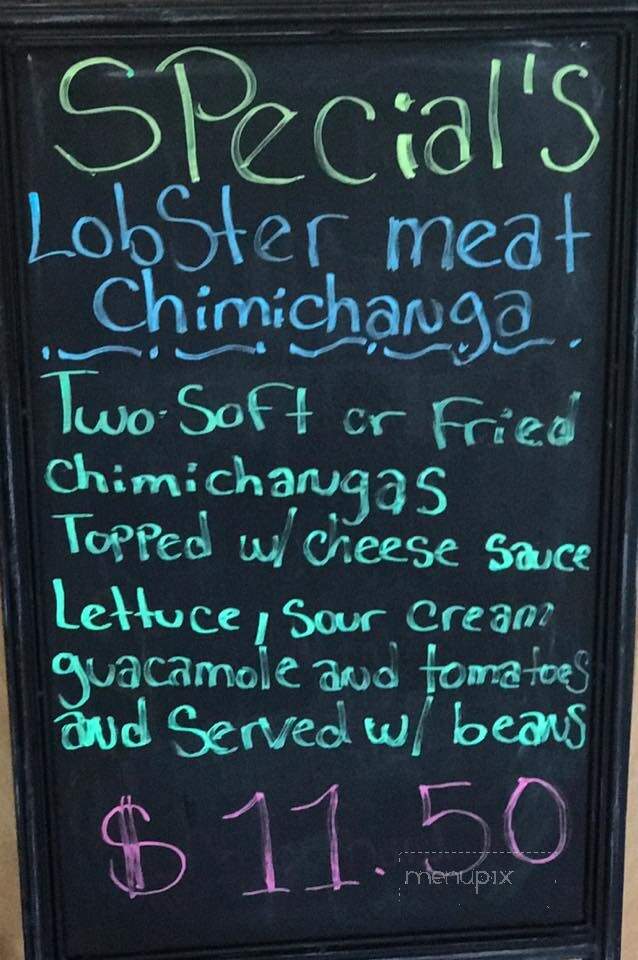 SPecial's
LobSter meat
Chimichanga
Two Soft or Fried
Chimichangas
Topped w/ cheese Sauce
Lettuce, Sour cream
guacamole and tomatoes
and Served w/ beans
$ 11.50
menupix